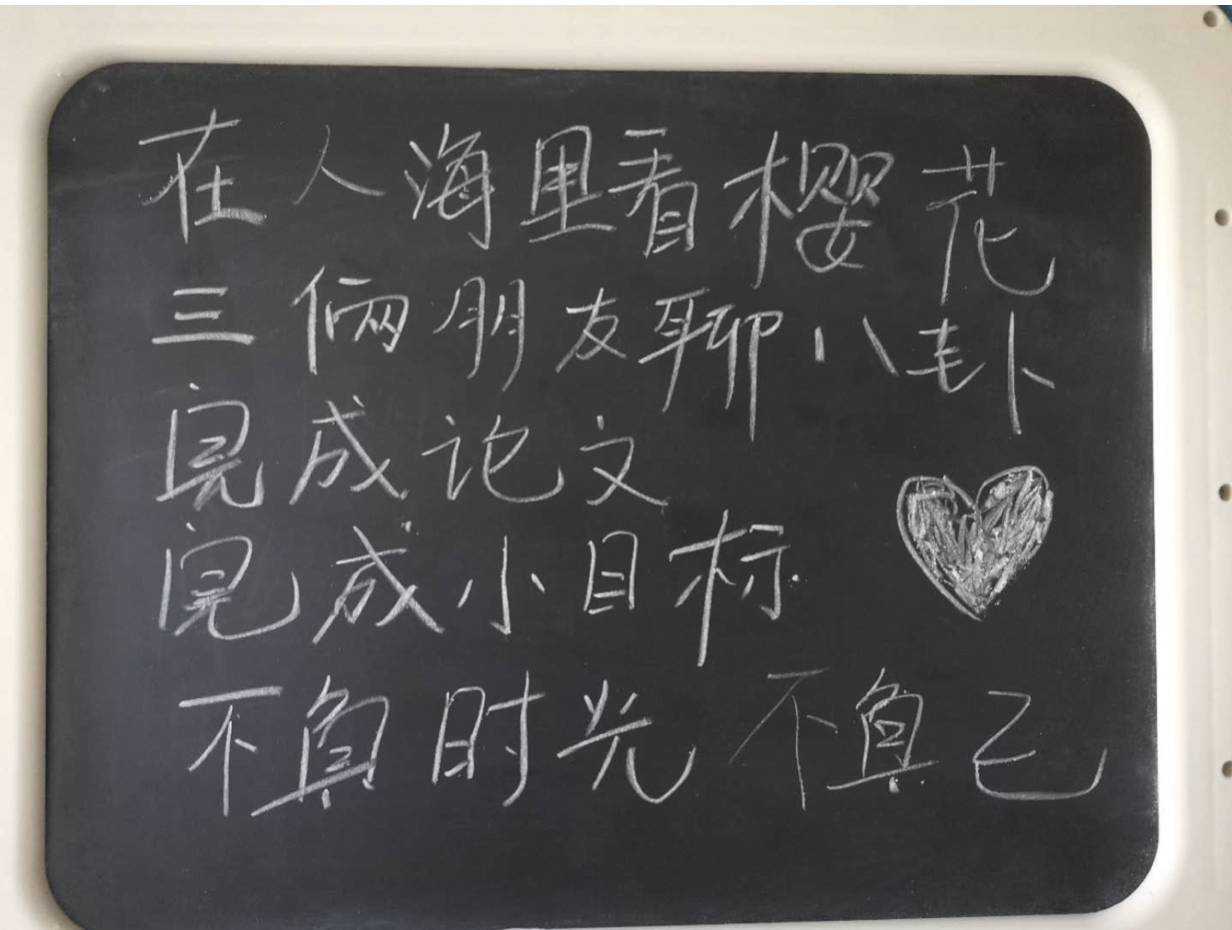 在人海里看樱花
三俩朋友聊八卦
完成论文
完成小目标
不负时光 不负己